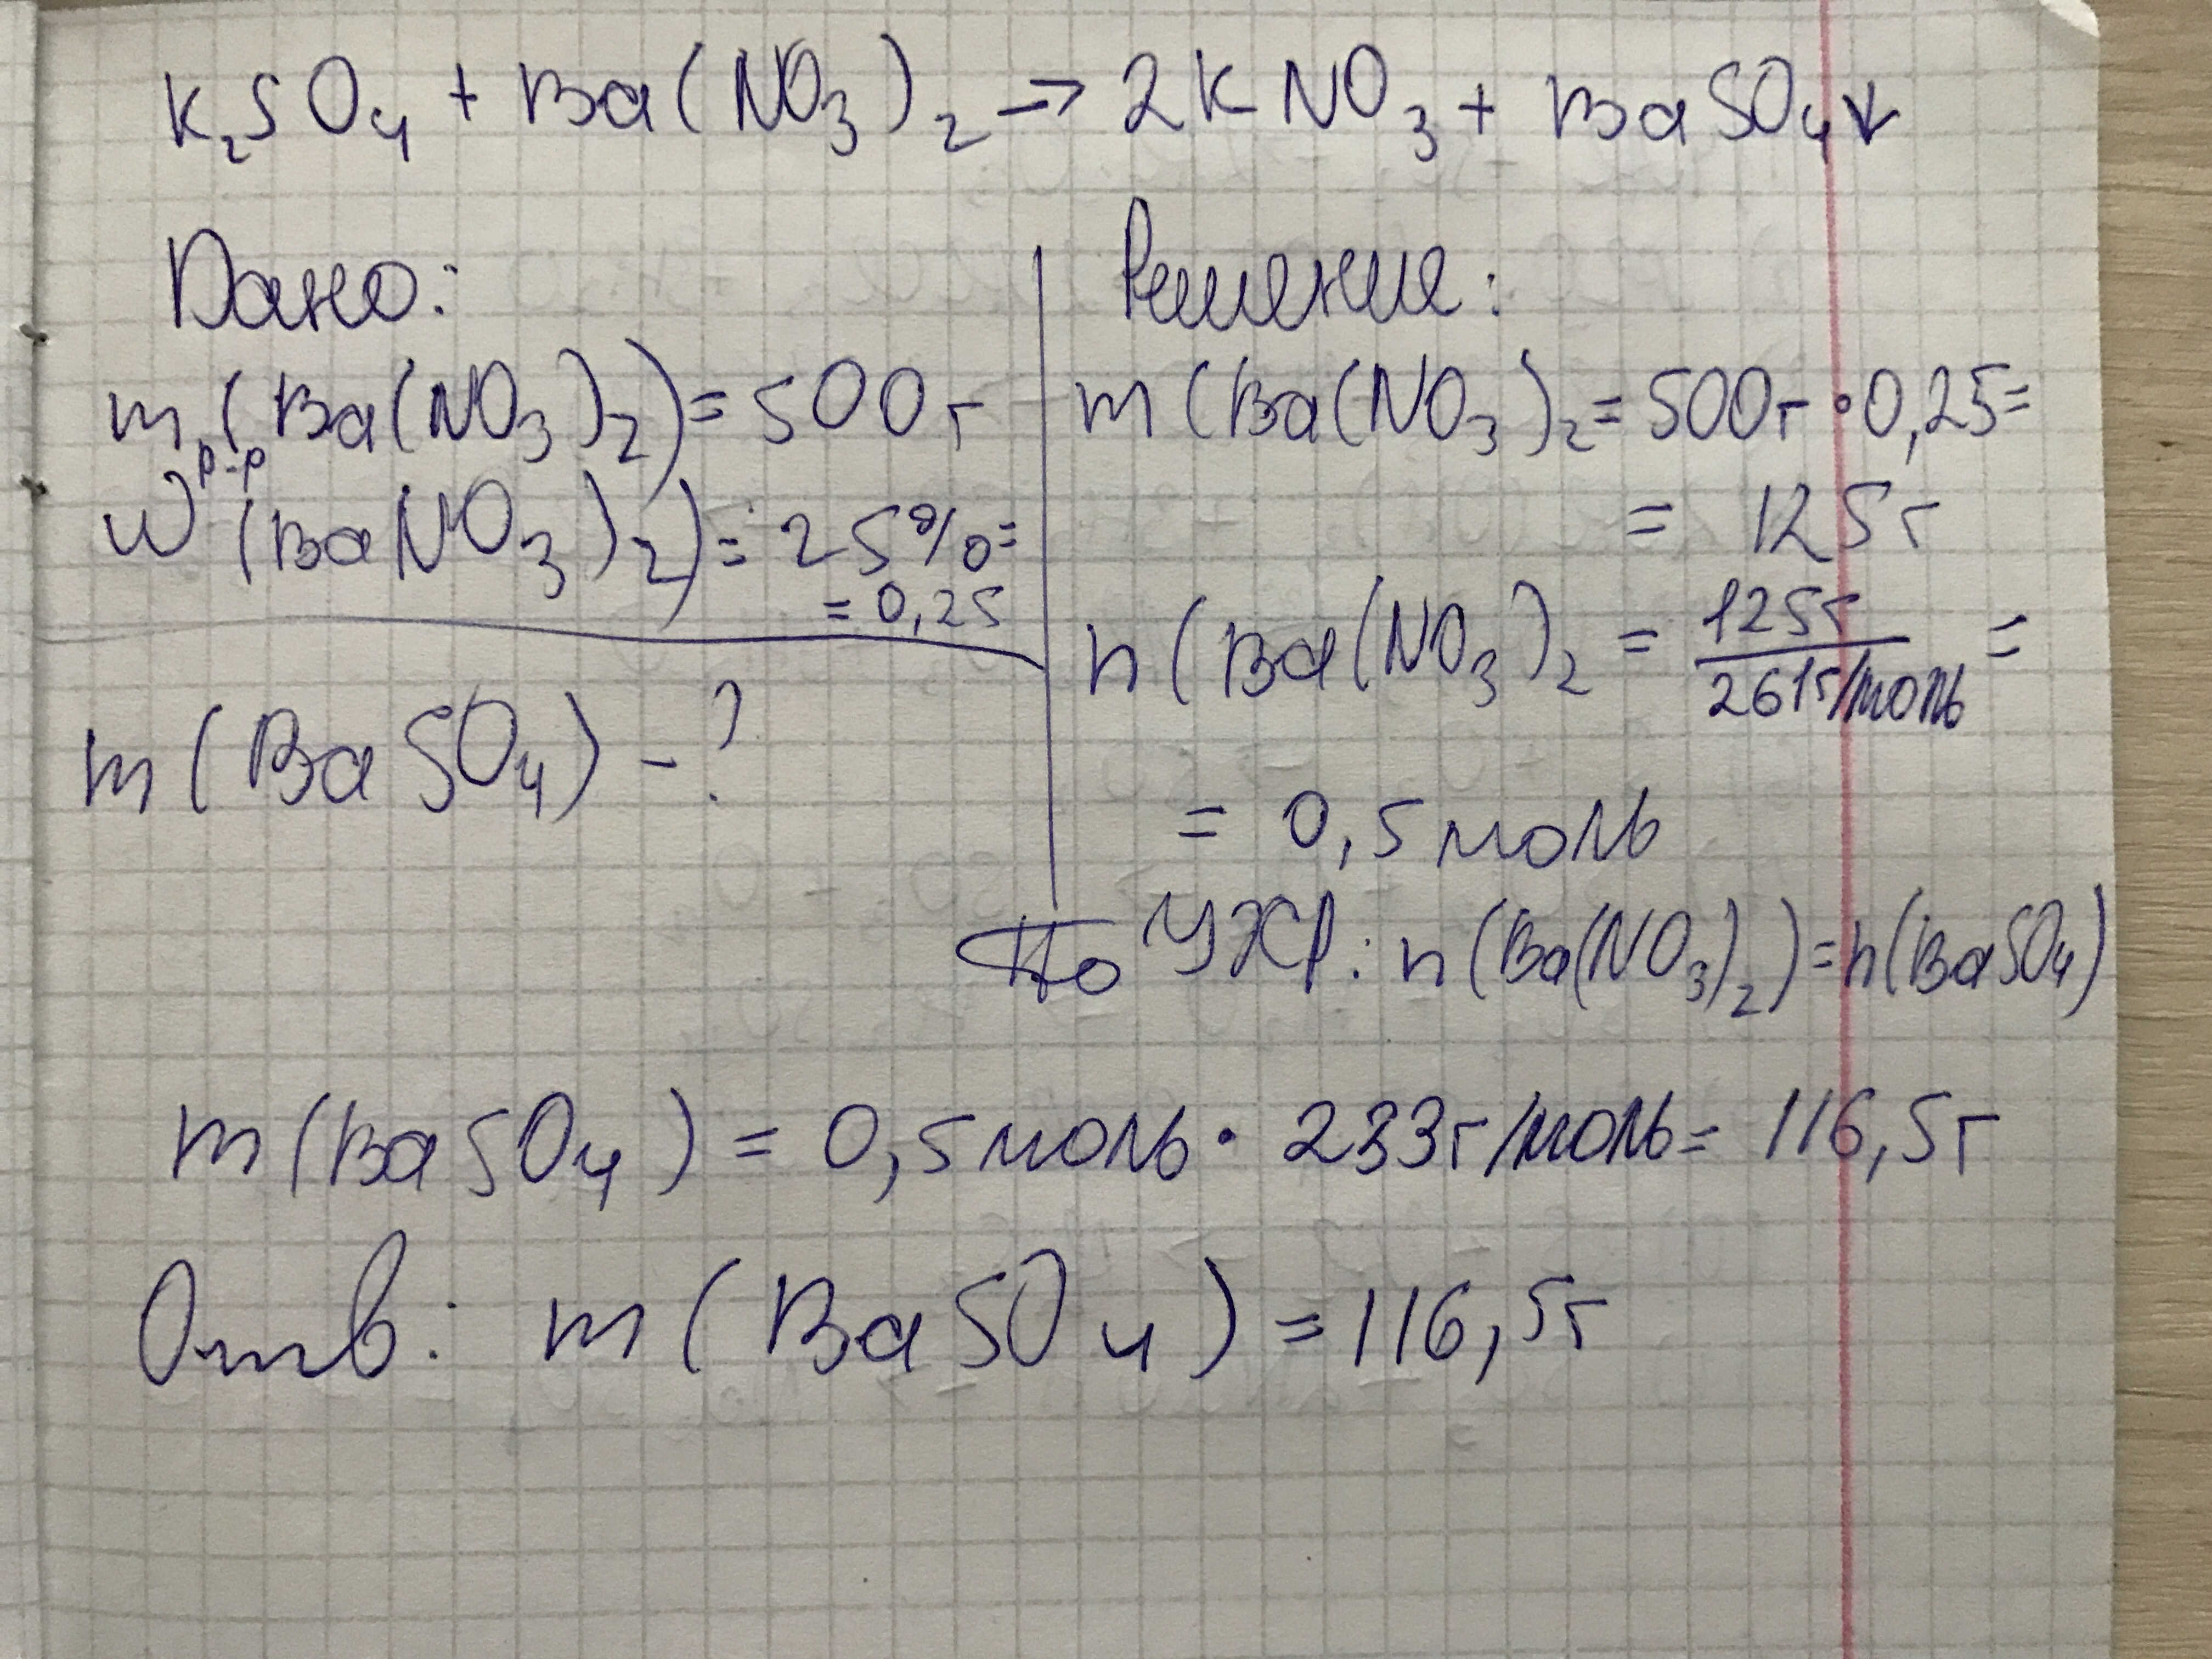 K₂SO₄ + Ba(NO₃)₂ → 2KNO₃ + BaSO₄↓
Дано:
m р-р (Ba(NO₃)₂) = 500г
W (BaNO₃)₂) = 25% =
= 0,25
m(BaSO₄) - ?
Решение:
m(Ba(NO₃)₂ = 500г • 0,25 =
= 125г
n(Ba(NO₃)₂ = 125г / 261г/моль =
= 0,5 моль
По УХР: n(Ba(NO₃)₂) = n(BaSO₄)
m(BaSO₄) = 0,5 моль • 233г/моль = 116,5г
Отв: m(BaSO₄) = 116,5г